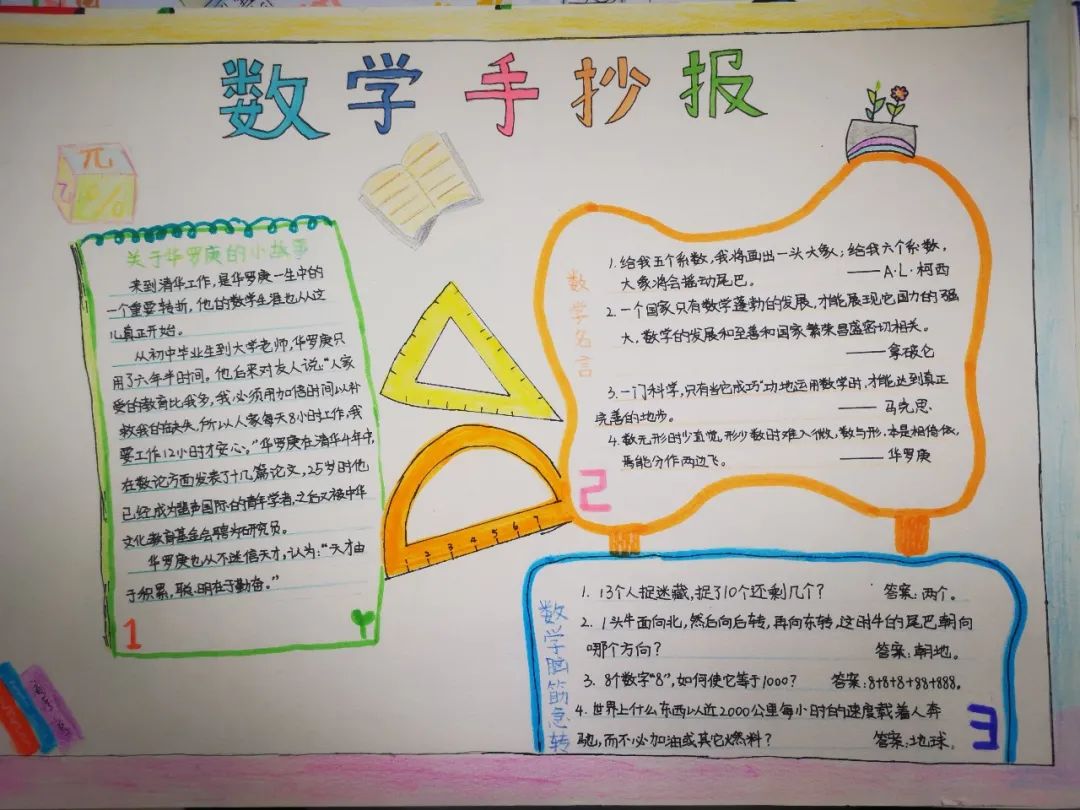 数学手抄报
π
关于华罗庚的小故事
来到清华工作，是华罗庚一生中的
一个重要转折，他的数学生涯也从这
儿真正开始。
从初中毕业生到大学老师，华罗庚只
用了六年半时间。他后来对友人说："人家
受的教育比我多，我必须用加倍时间以补
救我的缺失，所以人家每天8小时工作，我
要工作12小时才安心。"华罗庚在清华4年中，
在数论方面发表了十几篇论文，25岁时他
已经成为蜚声国际的青年学者，之后又被中华
文化教育基金会聘为研究员。
华罗庚也从不迷信天才，认为："天才由
于积累，聪明在于勤奋。"
1
2 3 4 5 6 7
数学名言
1.给我五个系数，我将画出一头大象；给我六个系数，
大象将会摇动尾巴。 ——A·L·柯西
2.一个国家只有数学蓬勃的发展，才能展现它国力的强
大，数学的发展和至善和国家繁荣昌盛密切相关。
——拿破仑
3.一门科学，只有当它成功地运用数学时，才能达到真正
完善的地步。 —— 马克思
4.数无形时少直觉，形少数时难入微，数与形，本是相倚依，
焉能分作两边飞。 ——华罗庚
2
数学脑筋急转
1. 13个人捉迷藏，捉了10个还剩几个？ 答案：两个。
2. 1头牛面向北，然后向后转，再向东转，这时牛的尾巴朝向
哪个方向？ 答案：朝地。
3. 8个数字"8"，如何使它等于1000？ 答案：8+8+8+88+888。
4.世界上什么东西以近2000公里每小时的速度载着人奔
驰，而不必加油或其它燃料？ 答案：地球。
3